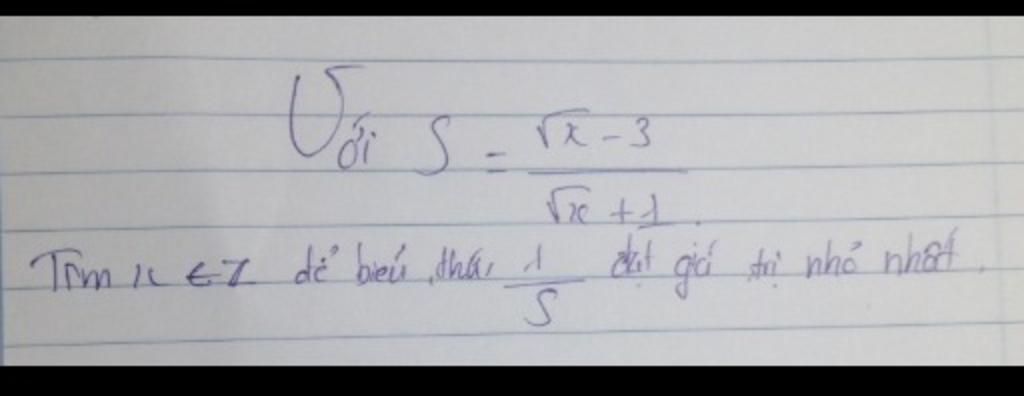 Với S = \frac{\sqrt{x} - 3}{\sqrt{x} + 1}.
Tìm x ∈ Z để biểu thức \frac{1}{S} đạt giá trị nhỏ nhất.